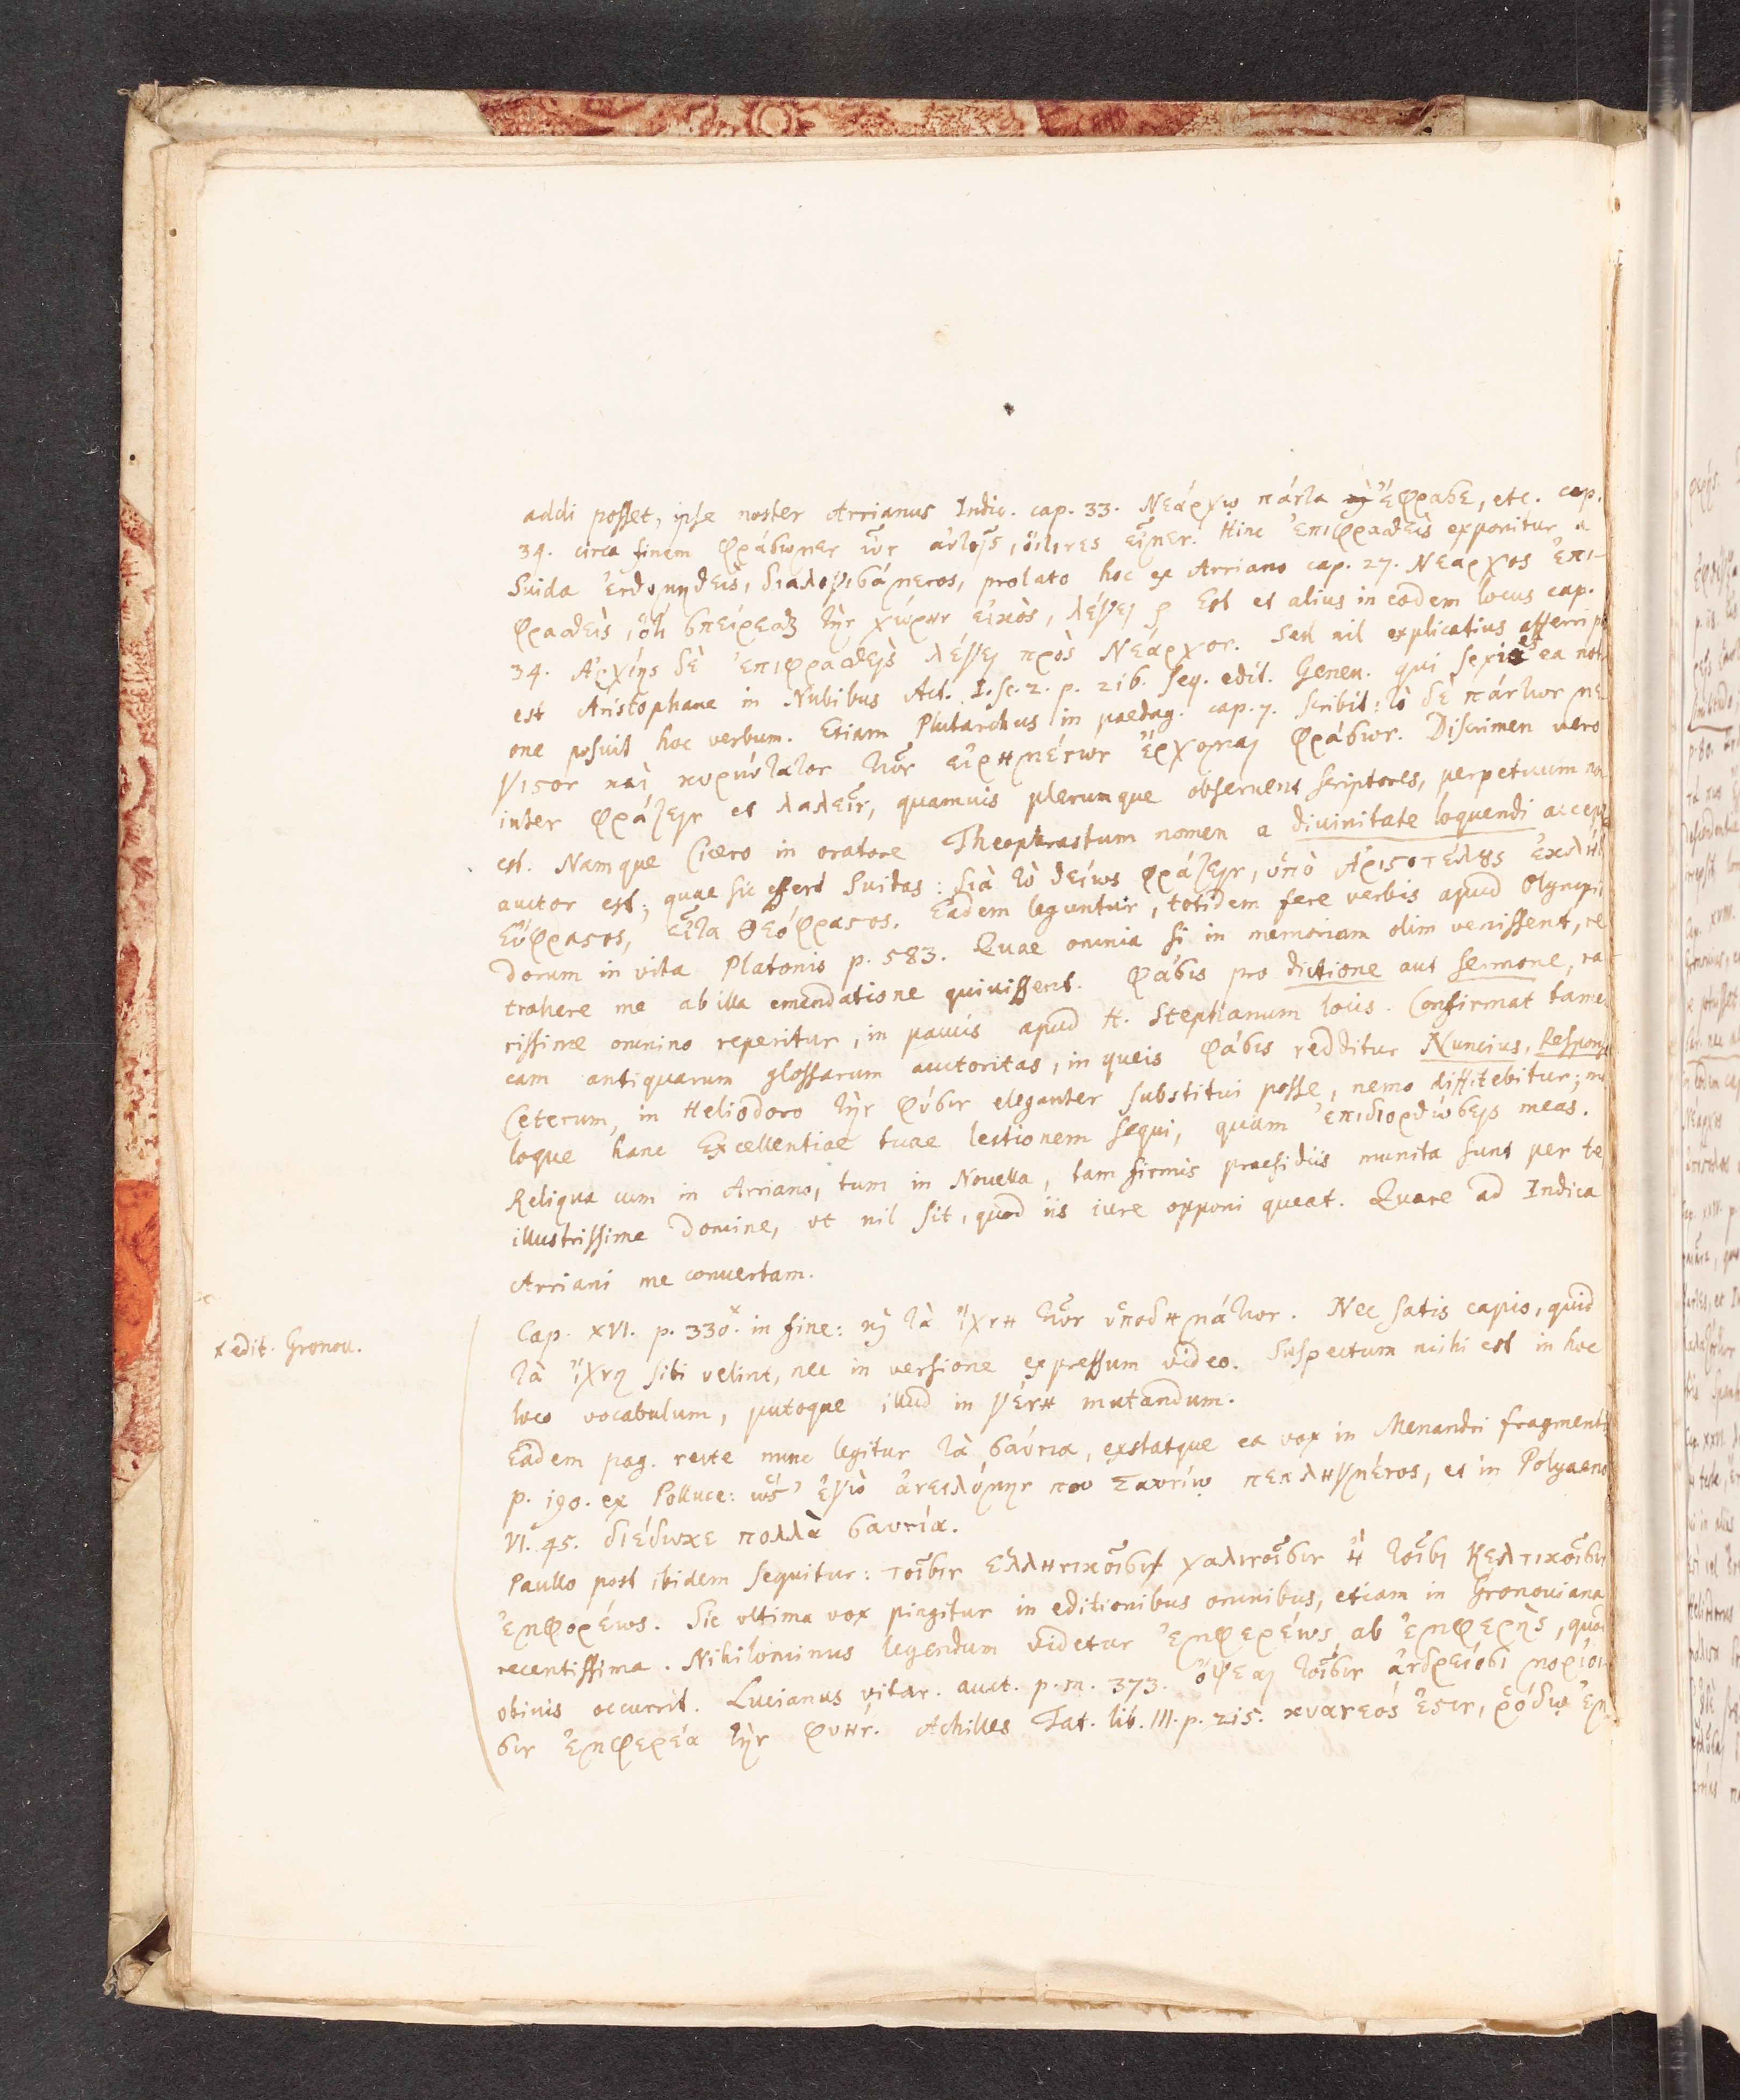 addi posset, ipse noster Arrianus Indic. cap. 33. Νεάρχῳ πάντα ἔφρασε, etc. cap.
34. circa finem φράσωμεν ὦν αὐτοῖς, οἵτινες εἶμεν. Hinc ἐπιφρασθεὶς exponitur a
Suida ἐνθυμηθεὶς, διαλογισάμενος, prolato hoc ex Arriano cap. 27. Νέαρχος ἐπι-
φρασθεὶς, ὅτι σπείρεσθαι τὴν χώρην εἰκὸς, λέγει Est et alius in eodem locus cap.
34. Ἀρχίης δὲ ἐπιφρασθεὶς λέγει πρὸς Νέαρχον. Sed nil explicatius afferri
est Aristophane in Nubibus Act. I. sc. 2. p. 216. seq. edit. Geneu. qui sexies ea noti-
one posuit hoc verbum. Etiam Plutarchus in paedag. cap. 7. scribit: τὸ δὲ πάντων μέ-
γιστον καὶ κυριώτατον τῶν εἰρημένων ἔρχομαι φράσων. Discrimen vero
inter φράζειν et λαλεῖν, quamuis plerumque obseruent scriptores, perpetuum non
est. Namque Cicero in oratore Theophrastum nomen a diuinitate loquendi accep
auctor est; quae sic effert Suidas: διὰ τὸ θείως φράζειν, ὑπὸ Ἀριστοτέλους ἐκλήθη
Εὔφραστος, εἶτα Θεόφραστος. Eadem leguntur, totidem fere verbis apud Olympio
dorum in vita Platonis p. 583. Quae omnia si in memoriam olim venissent, re
trahere me ab illa emendatione quiuissent. φάσις pro dictione aut sermone, ra
rissime omnino reperitur, in paucis apud H. Stephanum locis. Confirmat tamen
eam antiquarum glossarum auctoritas, in queis φάσις redditur Nuncius, Respons
Ceterum, in Heliodoro τὴν φύσιν eleganter substitui posse, nemo diffitebitur; ma
loque hanc Excellentiae tuae lectionem sequi, quam ἐπιδιορθώσεις meas.
Reliqua cum in Arriano, tum in Nouella, tam firmis praesidiis munita sunt per te,
illustrissime Domine, vt nil sit, quod iis iure opponi queat. Quare ad Indica
Arriani me conuertam.
Cap. XVI. p. 330.ˣ in fine: καὶ τὰ ἴχνη τῶν ὑποδημάτων. Nec satis capio, quid
x edit. Gronou.
τὰ ἴχνη sibi velint, nec in versione expressum video. Suspectum mihi est in hoc
loco vocabulum, putoque illud in γένη mutandum.
Eadem pag. recte nunc legitur τὰ σαύνια, exstatque ea vox in Menandri fragmentis
p. 190. ex Polluce: ὡς ἐγὼ ἀνειλόμην που Σαυνίῳ πεπληγμένος, et in Polyaeno
VI. 45. διέδωκε πολλὰ σαυνία.
Paullo post ibidem sequitur: τοῖσιν Ἑλληνικοῖσι χαλινοῖσιν ἢ τοῖσι Κελτικοῖσιν
ἐμφορέως. Sic vltima vox pingitur in editionibus omnibus, etiam in Gronouiana
recentissima. Nihilominus legendum videtur ἐμφερέως, ab ἐμφερὴς, quod
obiuis occurrit. Lucianus vitar. auct. p. m. 373. ὄψεαι τοῖσιν ἀνδρείοσι μορίοι-
σιν ἐμφερέα τὴν φυήν. Achilles Tat. lib. III. p. 215. κυάνεός ἐστιν, ῥόδῳ ἐμ-